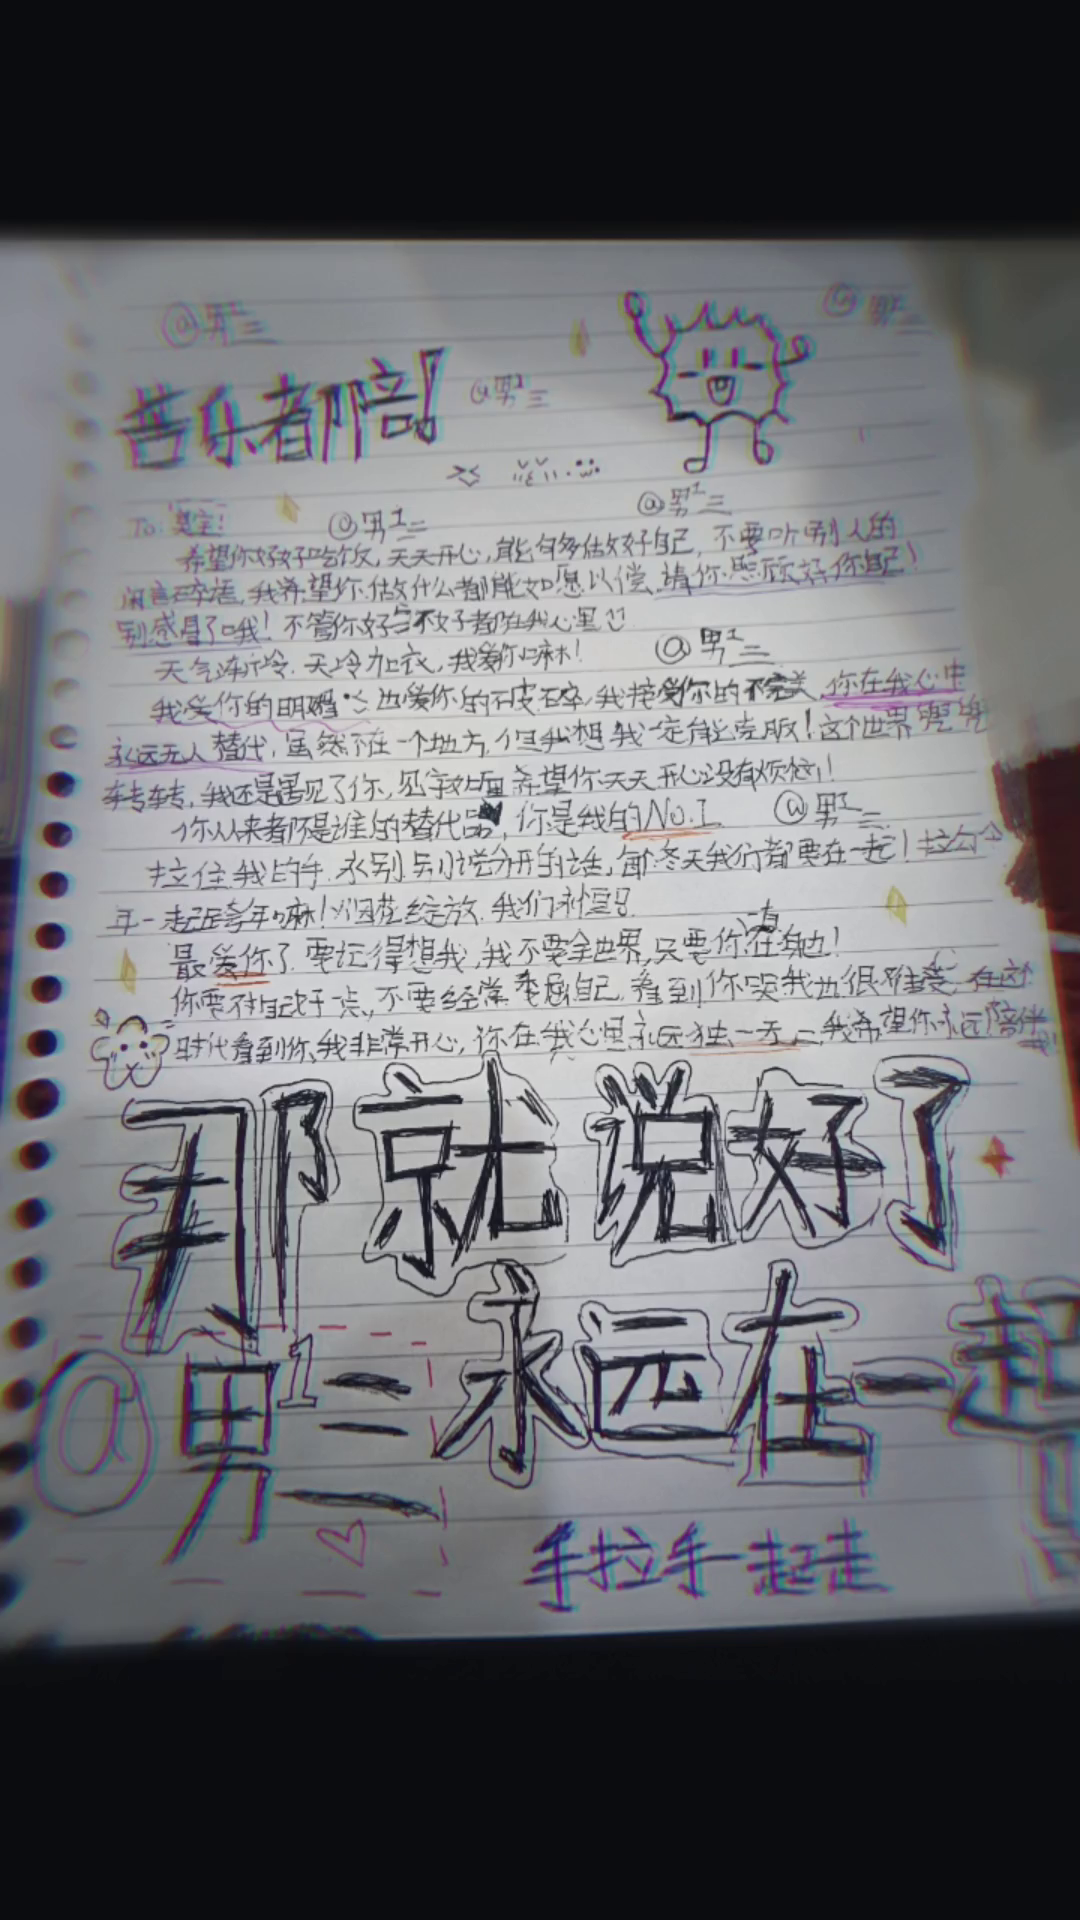 @男1三
苦乐者都陪!
@男1三
To: 宝!
@男1三
@男1三
希望你好好吃饭，天天开心，能够多做好自己，不要听别人的
闲言碎语，我希望你做什么都能如愿以偿，请你照顾好你自己!
别感冒了哦! 不管你好与不好都在我心里
天气渐冷，天冷加衣，我爱你嘛!
@男1三
我爱你的明媚 也爱你的破碎，我接受你的不完美，你在我心中
永远无人替代，虽然不在一个地方，但我想我一定能
这个世界兜兜
转转，我还是遇见了你，见字如面 希望你天天开心没有烦恼!
你从来都不是谁的替代品，你是我的No.1
@男1三
拉住我的手，永别说分开的话，每个冬天我们都要在一起! 拉勾
年一起跨年嘛! 烟花绽放，我们
最爱你了，要记得想我，我不要全世界，只要你在身边!
你要对自己好一点，不要经常委屈自己，看到你哭我也很难受，在这个
时代看到你，我非常开心，你在我心里永远独一无二，我希望你永远陪伴
那就说好了
@男1三
永远在一起
手拉手一起走